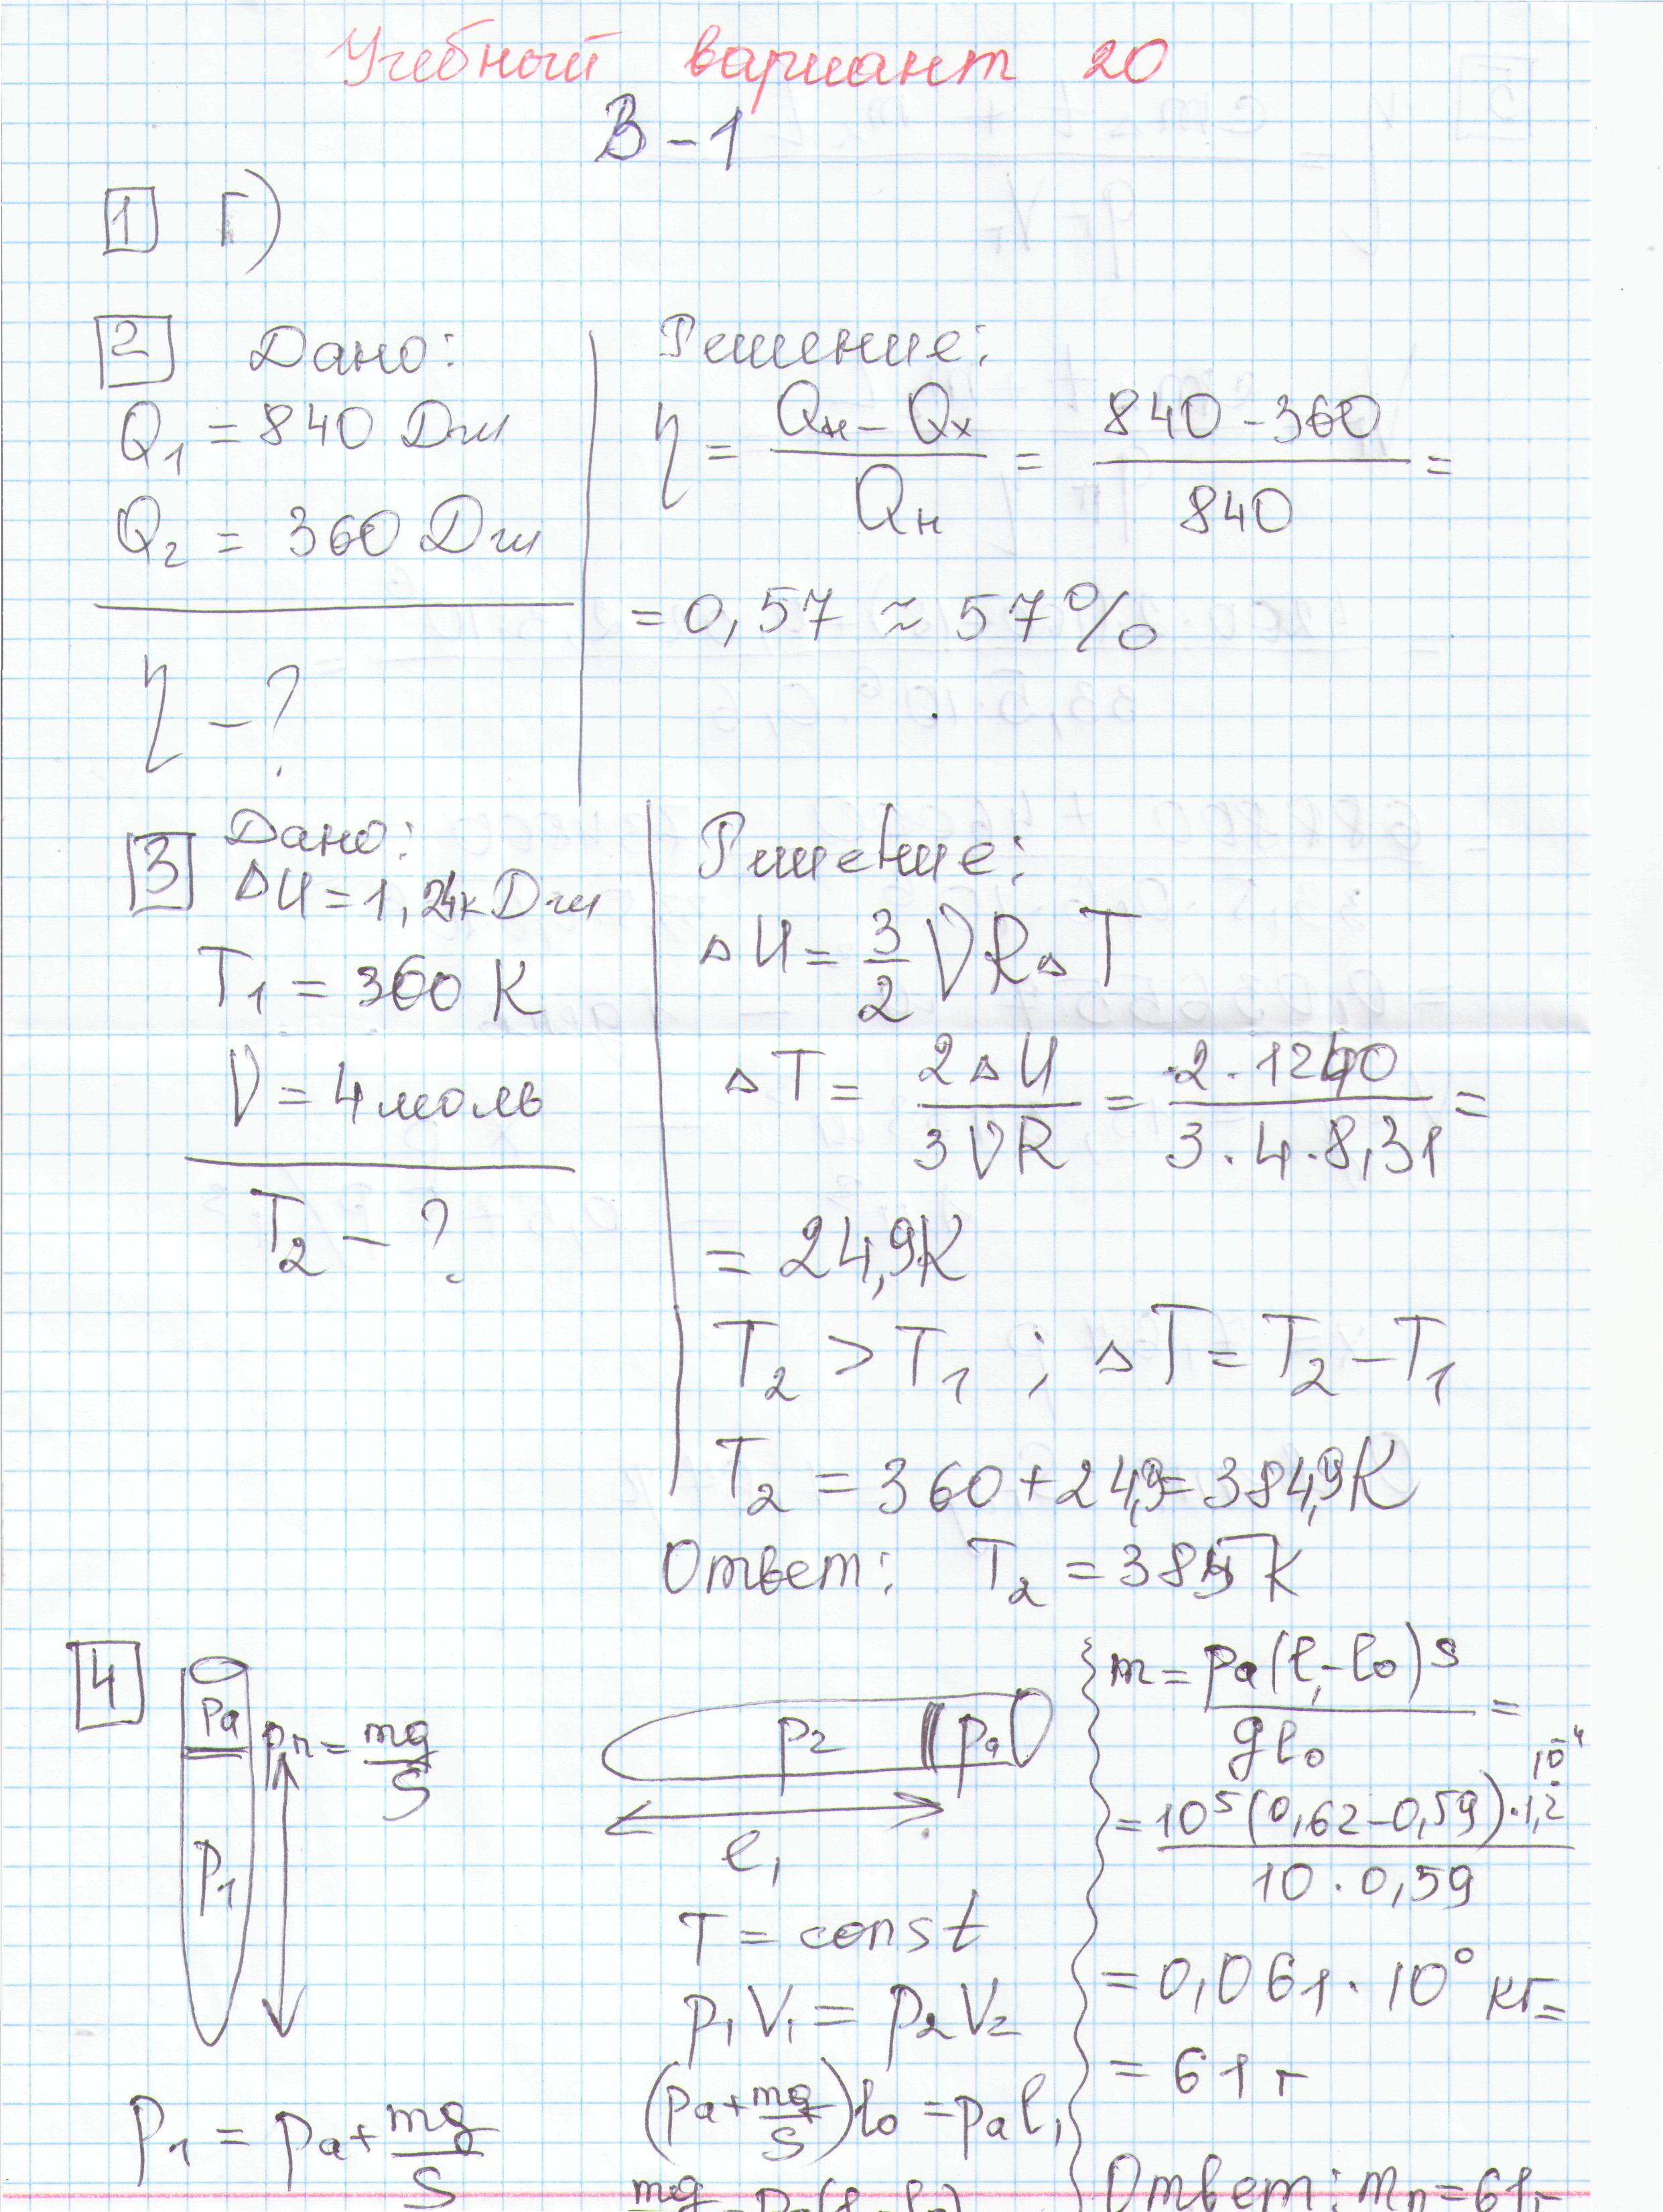 Учебный вариант 20
В-1
1 Г)
2 Дано:
Q₁ = 840 Дж
Q₂ = 360 Дж
η - ?
Решение:
η = (Qн - Qх)/Qн = (840 - 360)/840 =
= 0,57 ≈ 57%
3 Дано:
ΔU = 1,24кДж
T₁ = 360 К
ν = 4 моль
T₂ - ?
Решение:
ΔU = 3/2 νRΔT
ΔT = 2ΔU/3νR = 2·1240/3·4·8,31 =
= 24,9К
T₂ > T₁ ; ΔT = T₂ - T₁
T₂ = 360 + 24,9 = 384,9К
Ответ: T₂ = 385 К
4
pa
pп = mg/S
p₁
p₁ = pa + mg/S
p₂ pa
l₁
T = const
p₁V₁ = p₂V₂
(pa + mg/S)l₀ = pa l₁
mg = pa(l₁ - l₀)
m = pa(l₁ - l₀)S/gl₀ =
= 10⁵(0,62 - 0,59)·1,2·10⁻⁴/10·0,59
= 0,061·10⁰ кг =
= 61 г
Ответ: mп = 61г